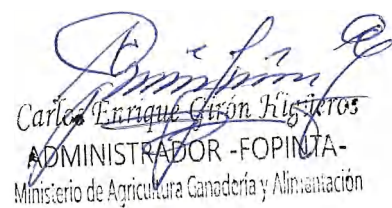 Carlos Enrique Girón Higueros
ADMINISTRADOR -FOPINTA-
Ministerio de Agricultura Ganadería y Alimentación